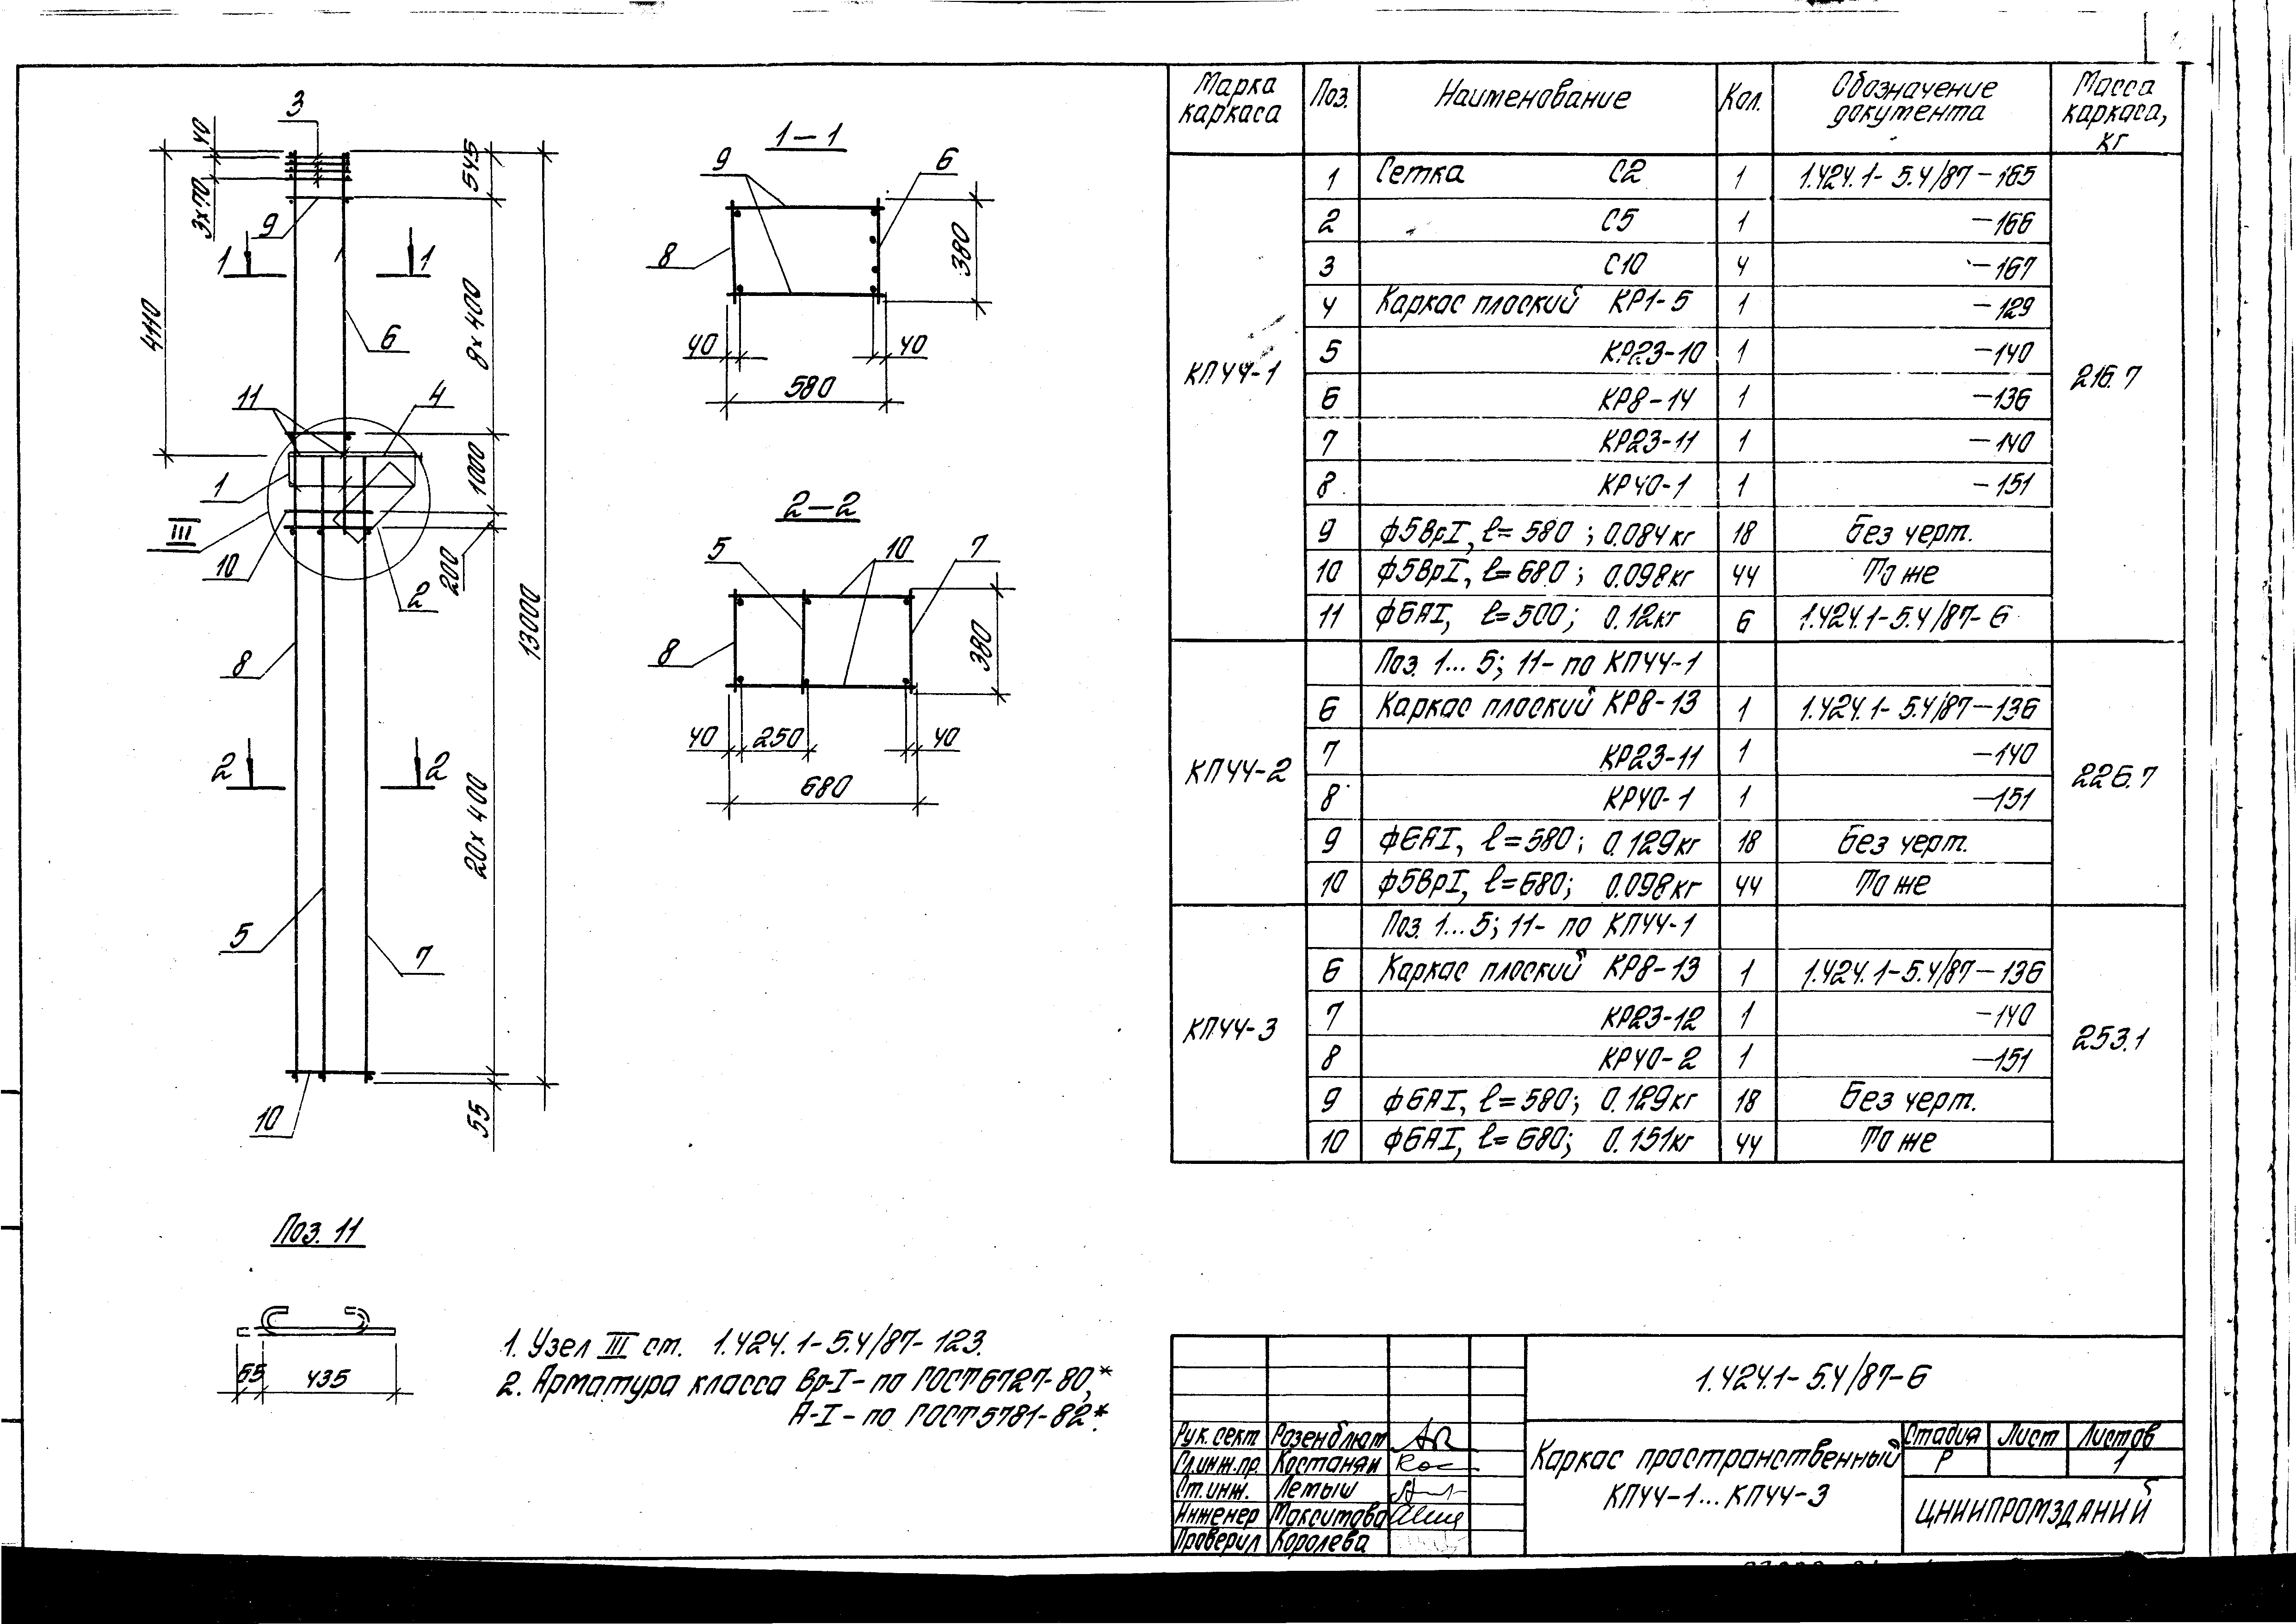 Марка каркаса | Поз. | Наименование | Кол. | Обозначение документа | Масса каркаса, кг
КП44-1 | 216.7
1 | Сетка С2 | 1 | 1.424.1-5.4/87-165
2 | С5 | 1 | -166
3 | С10 | 4 | -167
4 | Каркас плоский КР1-5 | 1 | -129
5 | КР23-10 | 1 | -140
6 | КР8-14 | 1 | -136
7 | КР23-11 | 1 | -140
8 | КР40-1 | 1 | -151
9 | ф5ВрI, ℓ=580; 0.084кг | 18 | Без черт.
10 | ф5ВрI, ℓ=680; 0.098кг | 44 | То же
11 | ф6АI, ℓ=500; 0.12кг | 6 | 1.424.1-5.4/87-6
КП44-2 | 226.7
Поз. 1...5; 11- по КП44-1
6 | Каркас плоский КР8-13 | 1 | 1.424.1-5.4/87-136
7 | КР23-11 | 1 | -140
8 | КР40-1 | 1 | -151
9 | ф6АI, ℓ=580; 0.129кг | 18 | Без черт.
10 | ф5ВрI, ℓ=680; 0.098кг | 44 | То же
КП44-3 | 253.1
Поз. 1...5; 11- по КП44-1
6 | Каркас плоский КР8-13 | 1 | 1.424.1-5.4/87-136
7 | КР23-12 | 1 | -140
8 | КР40-2 | 1 | -151
9 | ф6АI, ℓ=580; 0.129кг | 18 | Без черт.
10 | ф6АI, ℓ=680; 0.151кг | 44 | То же
3
40
3х70
545
9
1 1
4110
8х400
6
11 4
1
1000
III
10
2
200
13000
8
2 2
20х400
5
7
10
55
1-1
9 6
8
380
40 40
580
2-2
5 10 7
8
380
40 250 40
680
Поз. 11
65 435
1. Узел III см. 1.424.1-5.4/87-123.
2. Арматура класса Вр-I - по ГОСТ 6727-80,*
А-I - по ГОСТ 5781-82*.
1.424.1-5.4/87-6
Рук. сект Розенблюм
Гл.инж.пр. Костанян
Ст.инж. Летыш
Инженер Макситова
Проверил Королева
Каркас пространственный
КП44-1...КП44-3
Стадия Лист Листов
Р 1
ЦНИИПРОМЗДАНИЙ